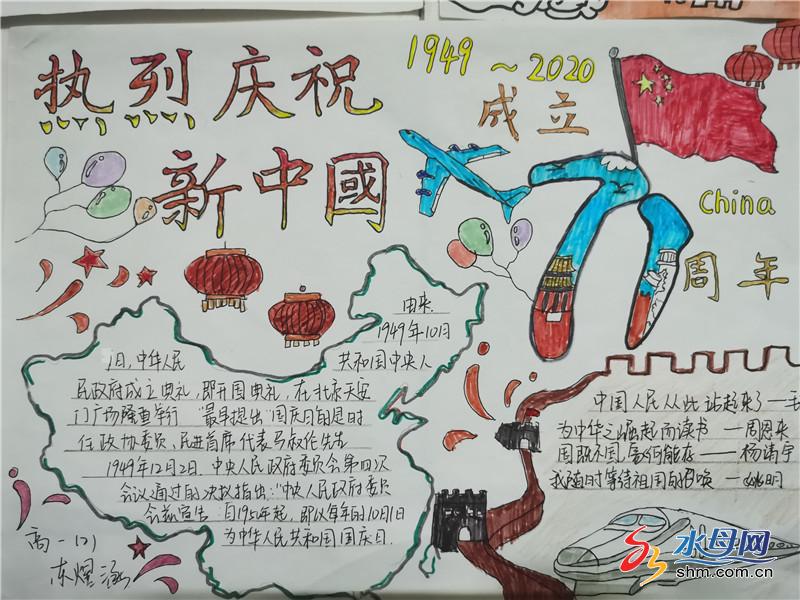 热烈庆祝
1949～2020
成立
新中國
China
周年
由来
1949年10月
1日,中华人民
共和国中央人
民政府成立典礼,即开国典礼,在北京天安
门广场隆重举行 "最早提出"国庆日的是时
任政协委员、民进首席代表马叙伦先生
1949年12月2日,中央人民政府委员会第四次
会议通过的决议指出:"中央人民政府委员
会兹宣告:自1950年起,即以每年的10月1日
为中华人民共和国国庆日.
中国人民从此站起来了—毛
为中华之崛起而读书 —周恩来
国既不国,家何能存——杨靖宇
我随时等待祖国的召唤 —姚明
高一
水母网
shm.com.cn